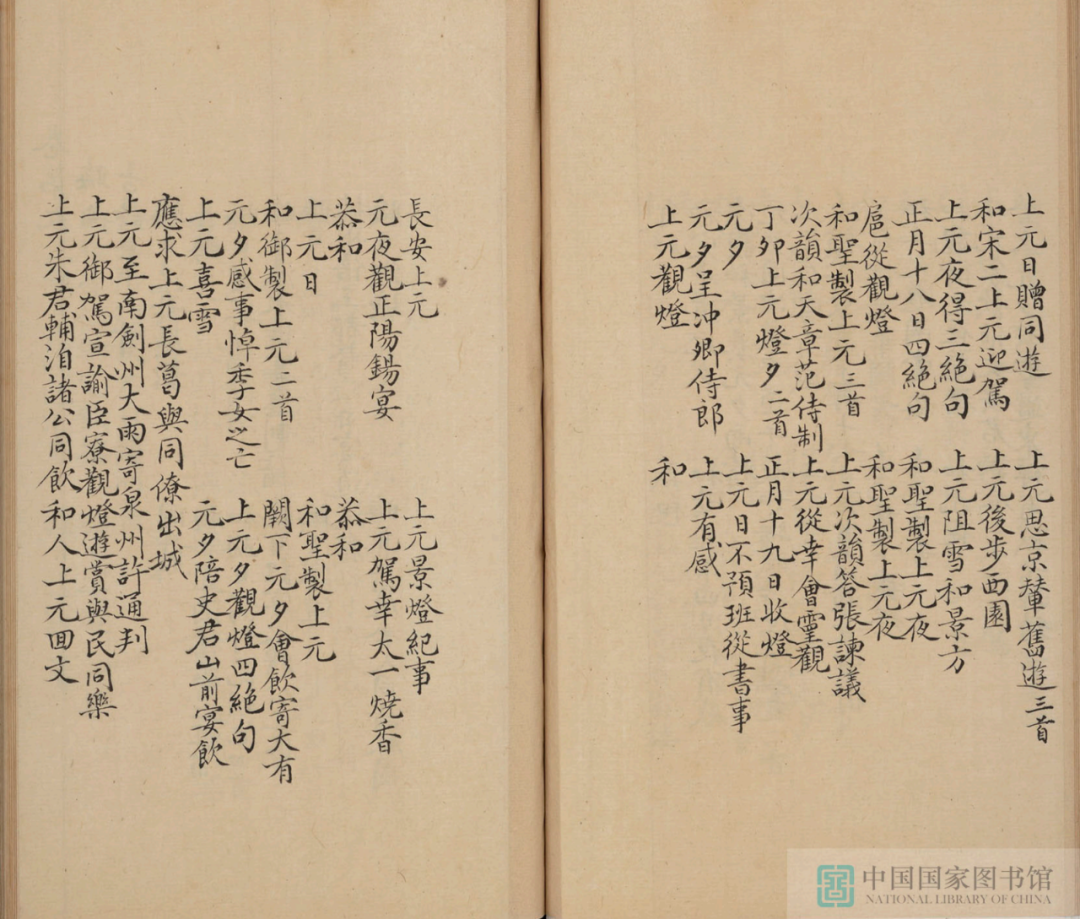 上元日贈同遊　上元思京輦舊遊三首
和宋二上元迎駕　上元後步西園
上元夜得三絕句　上元阻雪和景方
正月十八日四絕句　和聖製上元夜
扈從觀燈　和聖製上元夜
和聖製上元三首　上元次韻答張諫議
次韻和天章范侍制　上元從幸會靈觀
丁卯上元燈夕二首　正月十九日收燈
元夕　上元日不預班從書事
元夕呈沖卿侍郎　上元有感
上元觀燈　和
長安上元　上元景燈紀事
元夜觀正陽錫宴　上元駕幸太一燒香
恭和　恭和
上元日　和聖製上元
和御製上元二首　闕下元夕會飲寄大有
元夕感事悼季女之亡　上元夕觀燈四絕句
上元喜雪　元夕陪史君山前宴飲
應求上元長葛與同僚出城
上元至南劍州大雨寄泉州許通判
上元御駕宣諭臣寮觀燈遊賞與民同樂
上元朱君輔洎諸公同飲　和人上元回文
中国国家图书馆
NATIONAL LIBRARY OF CHINA